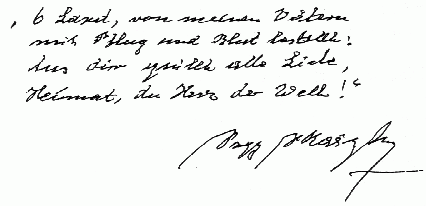 „O Land, von meinen Vätern
mit Pflug und Blut bestellt:
Aus dir quillt alle Liebe,
Heimat, du Herz der Welt!“